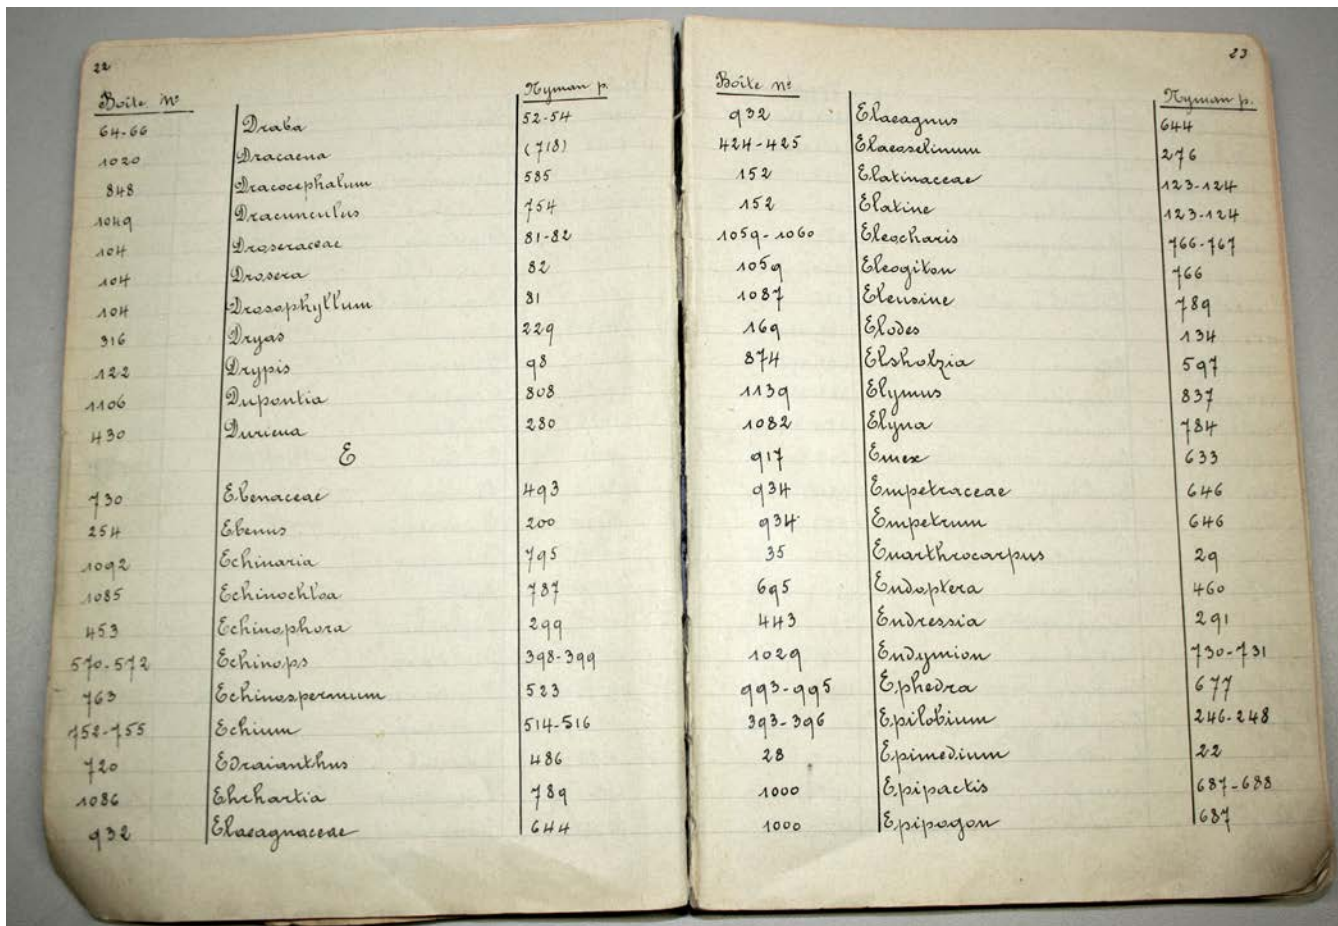 22
Boîte Nº Nyman p.
64-66 Draba 52-54
1020 Dracaena (718)
848 Dracocephalum 585
1049 Dracunculus 754
104 Droseraceae 81-82
104 Drosera 82
104 Drosophyllum 81
316 Dryas 229
122 Drypis 98
1106 Dupontia 808
430 Duriena 280
E
730 Ebenaceae 493
254 Ebenus 200
1092 Echinaria 795
1085 Echinochloa 787
453 Echinophora 299
570-572 Echinops 398-399
763 Echinospermum 523
752-755 Echium 514-516
720 Edraianthus 486
1086 Ehrhartia 789
932 Elaeagnaceae 644
23
Boîte nº Nyman p.
932 Elaeagnus 644
424-425 Elaeoselinum 276
152 Elatinaceae 123-124
152 Elatine 123-124
1059-1060 Eleocharis 766-767
1059 Eleogiton 766
1087 Eleusine 789
169 Elodes 134
874 Elsholzia 597
1139 Elymus 837
1082 Elyna 784
917 Emex 633
934 Empetraceae 646
934 Empetrum 646
35 Enarthrocarpus 29
695 Endoptera 460
443 Endressia 291
1029 Endymion 730-731
993-995 Ephedra 677
393-396 Epilobium 246-248
28 Epimedium 22
1000 Epipactis 687-688
1000 Epipogon 687